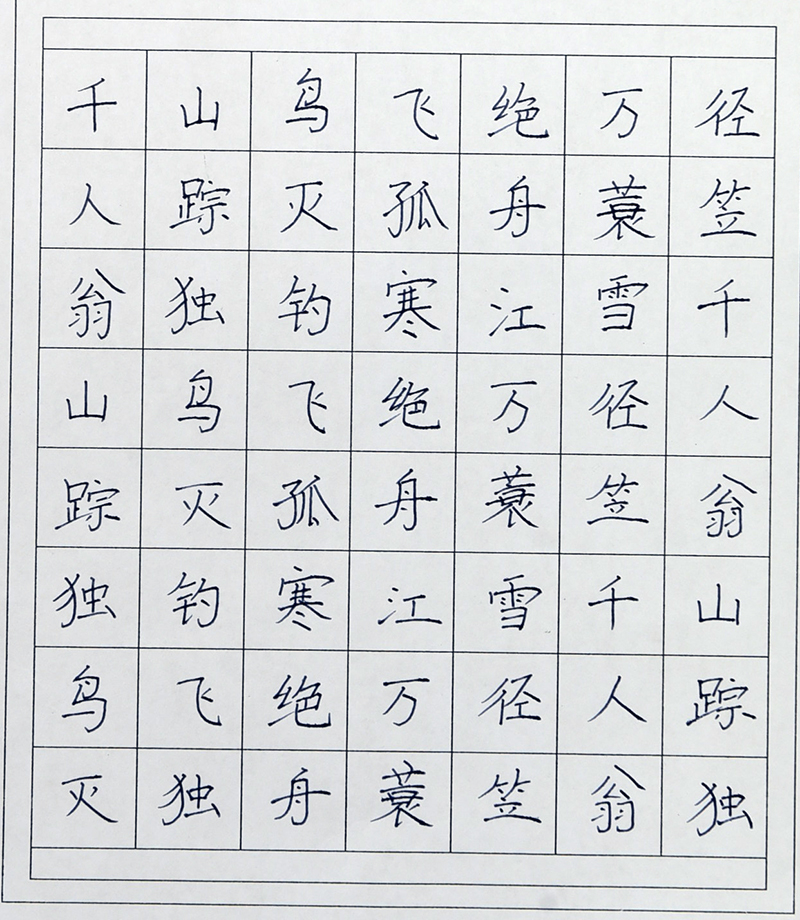 千山鸟飞绝万径
人踪灭孤舟蓑笠
翁独钓寒江雪千
山鸟飞绝万径人
踪灭孤舟蓑笠翁
独钓寒江雪千山
鸟飞绝万径人踪
灭独舟蓑笠翁独